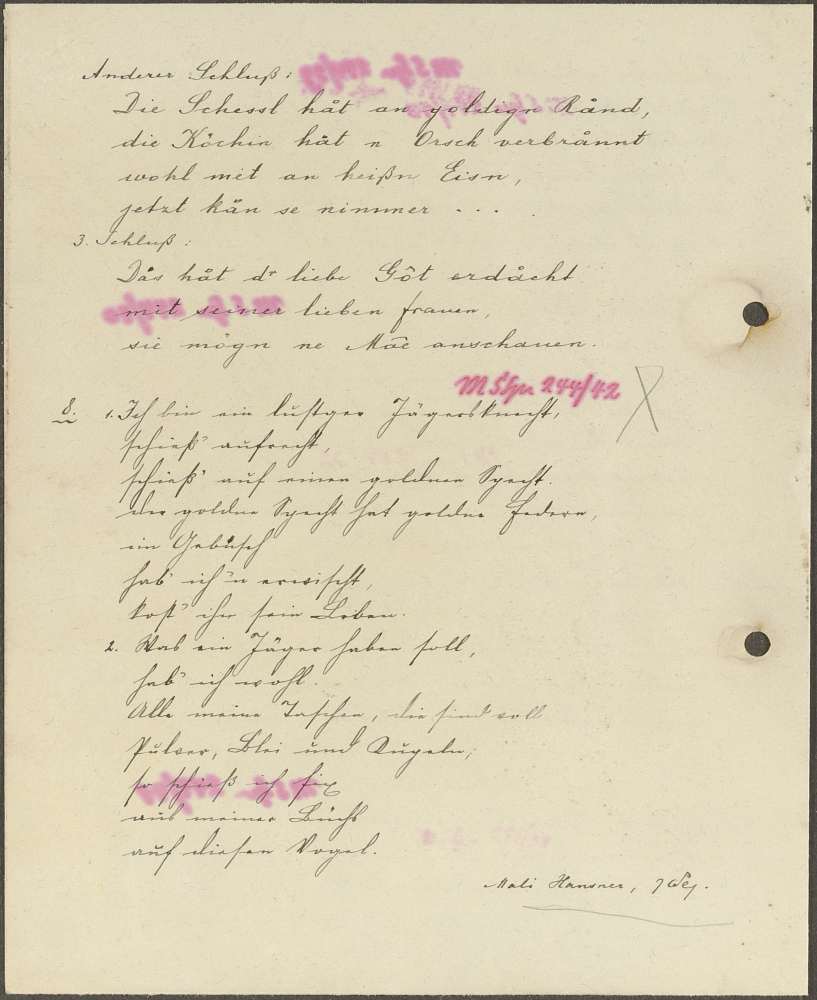 Anderer Schluß:
Die Schessl håt an goldign Rånd,
die Köchin håt n Orsch verbrånnt
wohl mit an heißn Eisn,
jetzt kån se nimmer . . .
3. Schluß:
Dås håt dr liebe Gôt erdåcht
mit seiner lieben Frauen,
sie mögn ne anschauen.
M S Spr 244/42
8. 1. Ich bin ein lustger Jägersknecht,
schieß' aufrecht,
schieß' auf einen goldnen Specht.
der goldne Specht hat goldne Federn,
im Gebüsch
hab' ich'n erwischt,
kost' ihn sein Leben.
2. Was ein Jäger haben soll,
hab' ich wohl.
Alle meine Taschen, die sind voll
Pulver, Blei und Kugeln;
so schieß ich fix
aus meiner Büchs
auf diesen Vogel.
Mali Hansner,